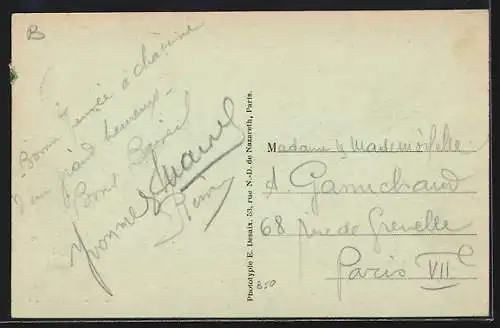 B
Bonne année à chacune
grand heureuse
Bons Baisers
Yvonne
Phototypie E. Desaix, 53, rue N.-D. de Nazareth, Paris.
850
Madame & Mademoiselle
A. Gamichaud
68 rue de Grenelle
Paris VIIe